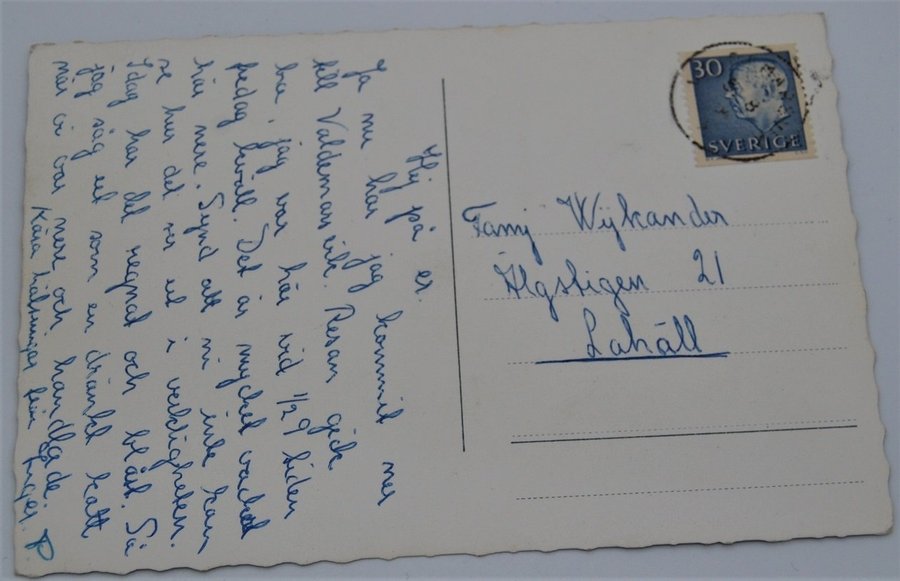 Hej på er.
Ja nu har jag kommit ner
till Valdemarsvik. Resan gick
bra, jag var här vid 1/2 9 tiden
fredag kväll. Det är mycket vackert
här nere. Synd att ni inte kan
se hur det ser ut i verkligheten.
Idag har det regnat och blåst. Så
jag såg ut som en dränkt katt
när vi var nere och handlade.
Kära hälsningar från Inger.
30
SVERIGE
Famj Wijkander
Älgstigen 21
Lahäll